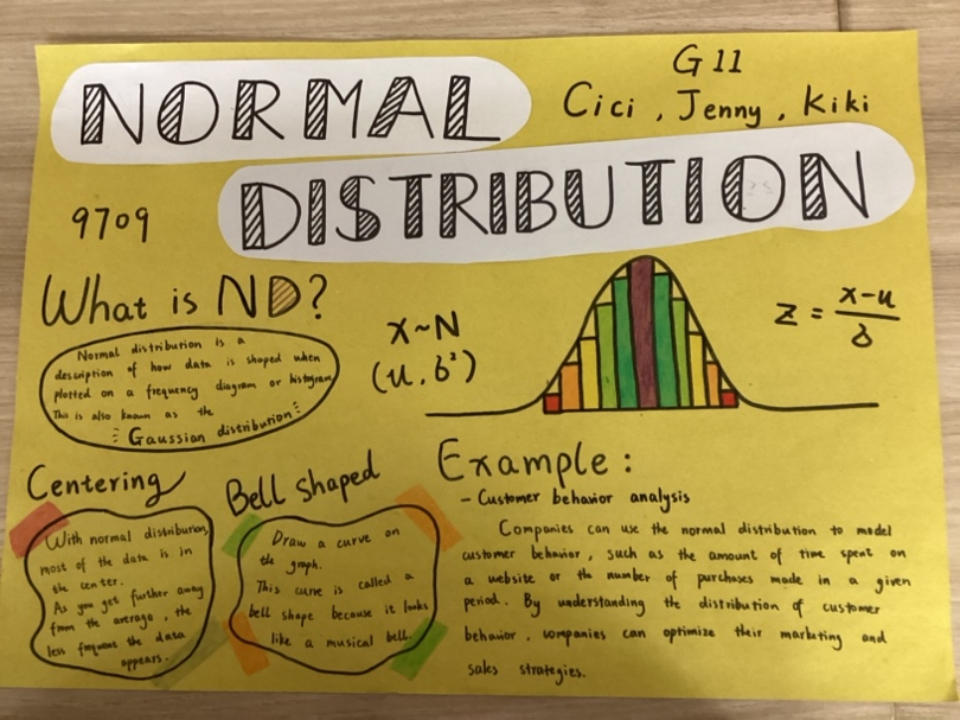 NORMAL
DISTRIBUTION
G11
Cici , Jenny , Kiki
9709
What is ND?
Normal distribution is a
description of how data is shaped when
plotted on a frequency diagram or histogram
This is also known as the
Gaussian distribution
x~N
(u, б²)
z = x-u
б
Centering
With normal distribution,
most of the data is in
the center.
As you get further away
from the average, the
less frequent the data
appears.
Bell shaped
Draw a curve on
the graph.
This curve is called a
bell shape because it looks
like a musical bell.
Example:
- Customer behavior analysis
Companies can use the normal distribution to model
customer behavior, such as the amount of time spent on
a website or the number of purchases made in a given
period. By understanding the distribution of customer
behavior, companies can optimize their marketing and
sales strategies.